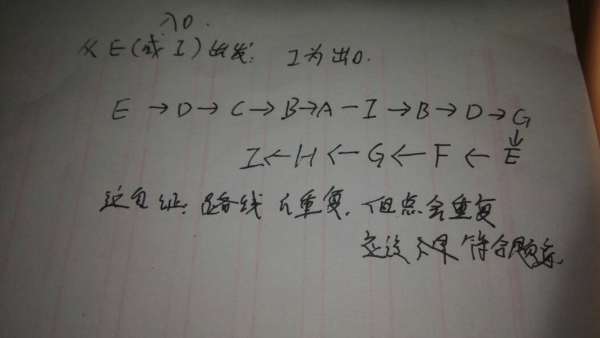 入口.
从E(或I)出发: I为出口.
E→D→C→B→A-I→B→D→G
↓
I←H←G←F←E
这包证: 路线不重复. 但点会重复
应该不是符合题意.